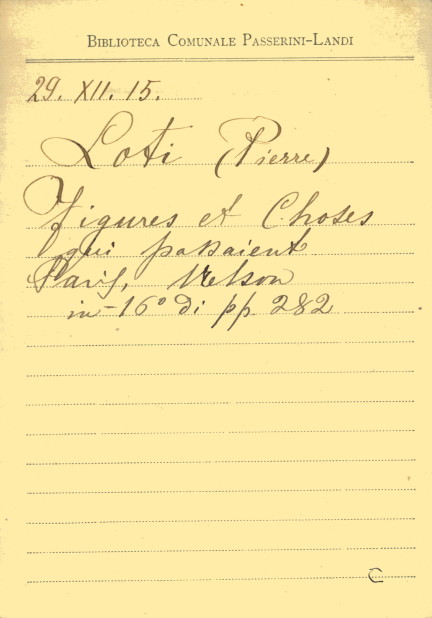 BIBLIOTECA COMUNALE PASSERINI-LANDI
29. XII. 15.
Loti (Pierre)
Figures et Choses
qui passaient
Paris, Nelson
in-16° di pp. 282
C